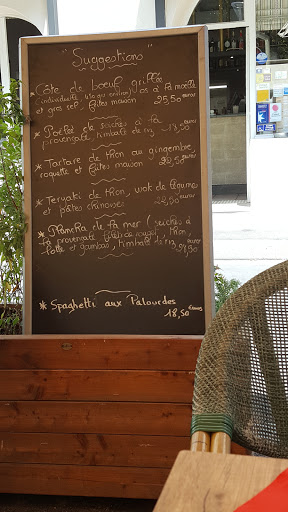 "Suggestions"
*Côte de boeuf grillée
(individuelle 450 gr environ) os à la moelle
et gros sel, frites maison 25,50 euros
* Poêlée de seiches à la
provençale, timbale de riz 17,50
* Tartare de thon au gingembre,
roquette et frites maison
* Teryaki de thon, wok de légumes
et pâtes chinoises
* Plancha de la mer (seiches à
la provençale, filets de rouget, thon,
lotte et gambas, timbale de riz
* Spaghetti aux Palourdes
18,50 euros